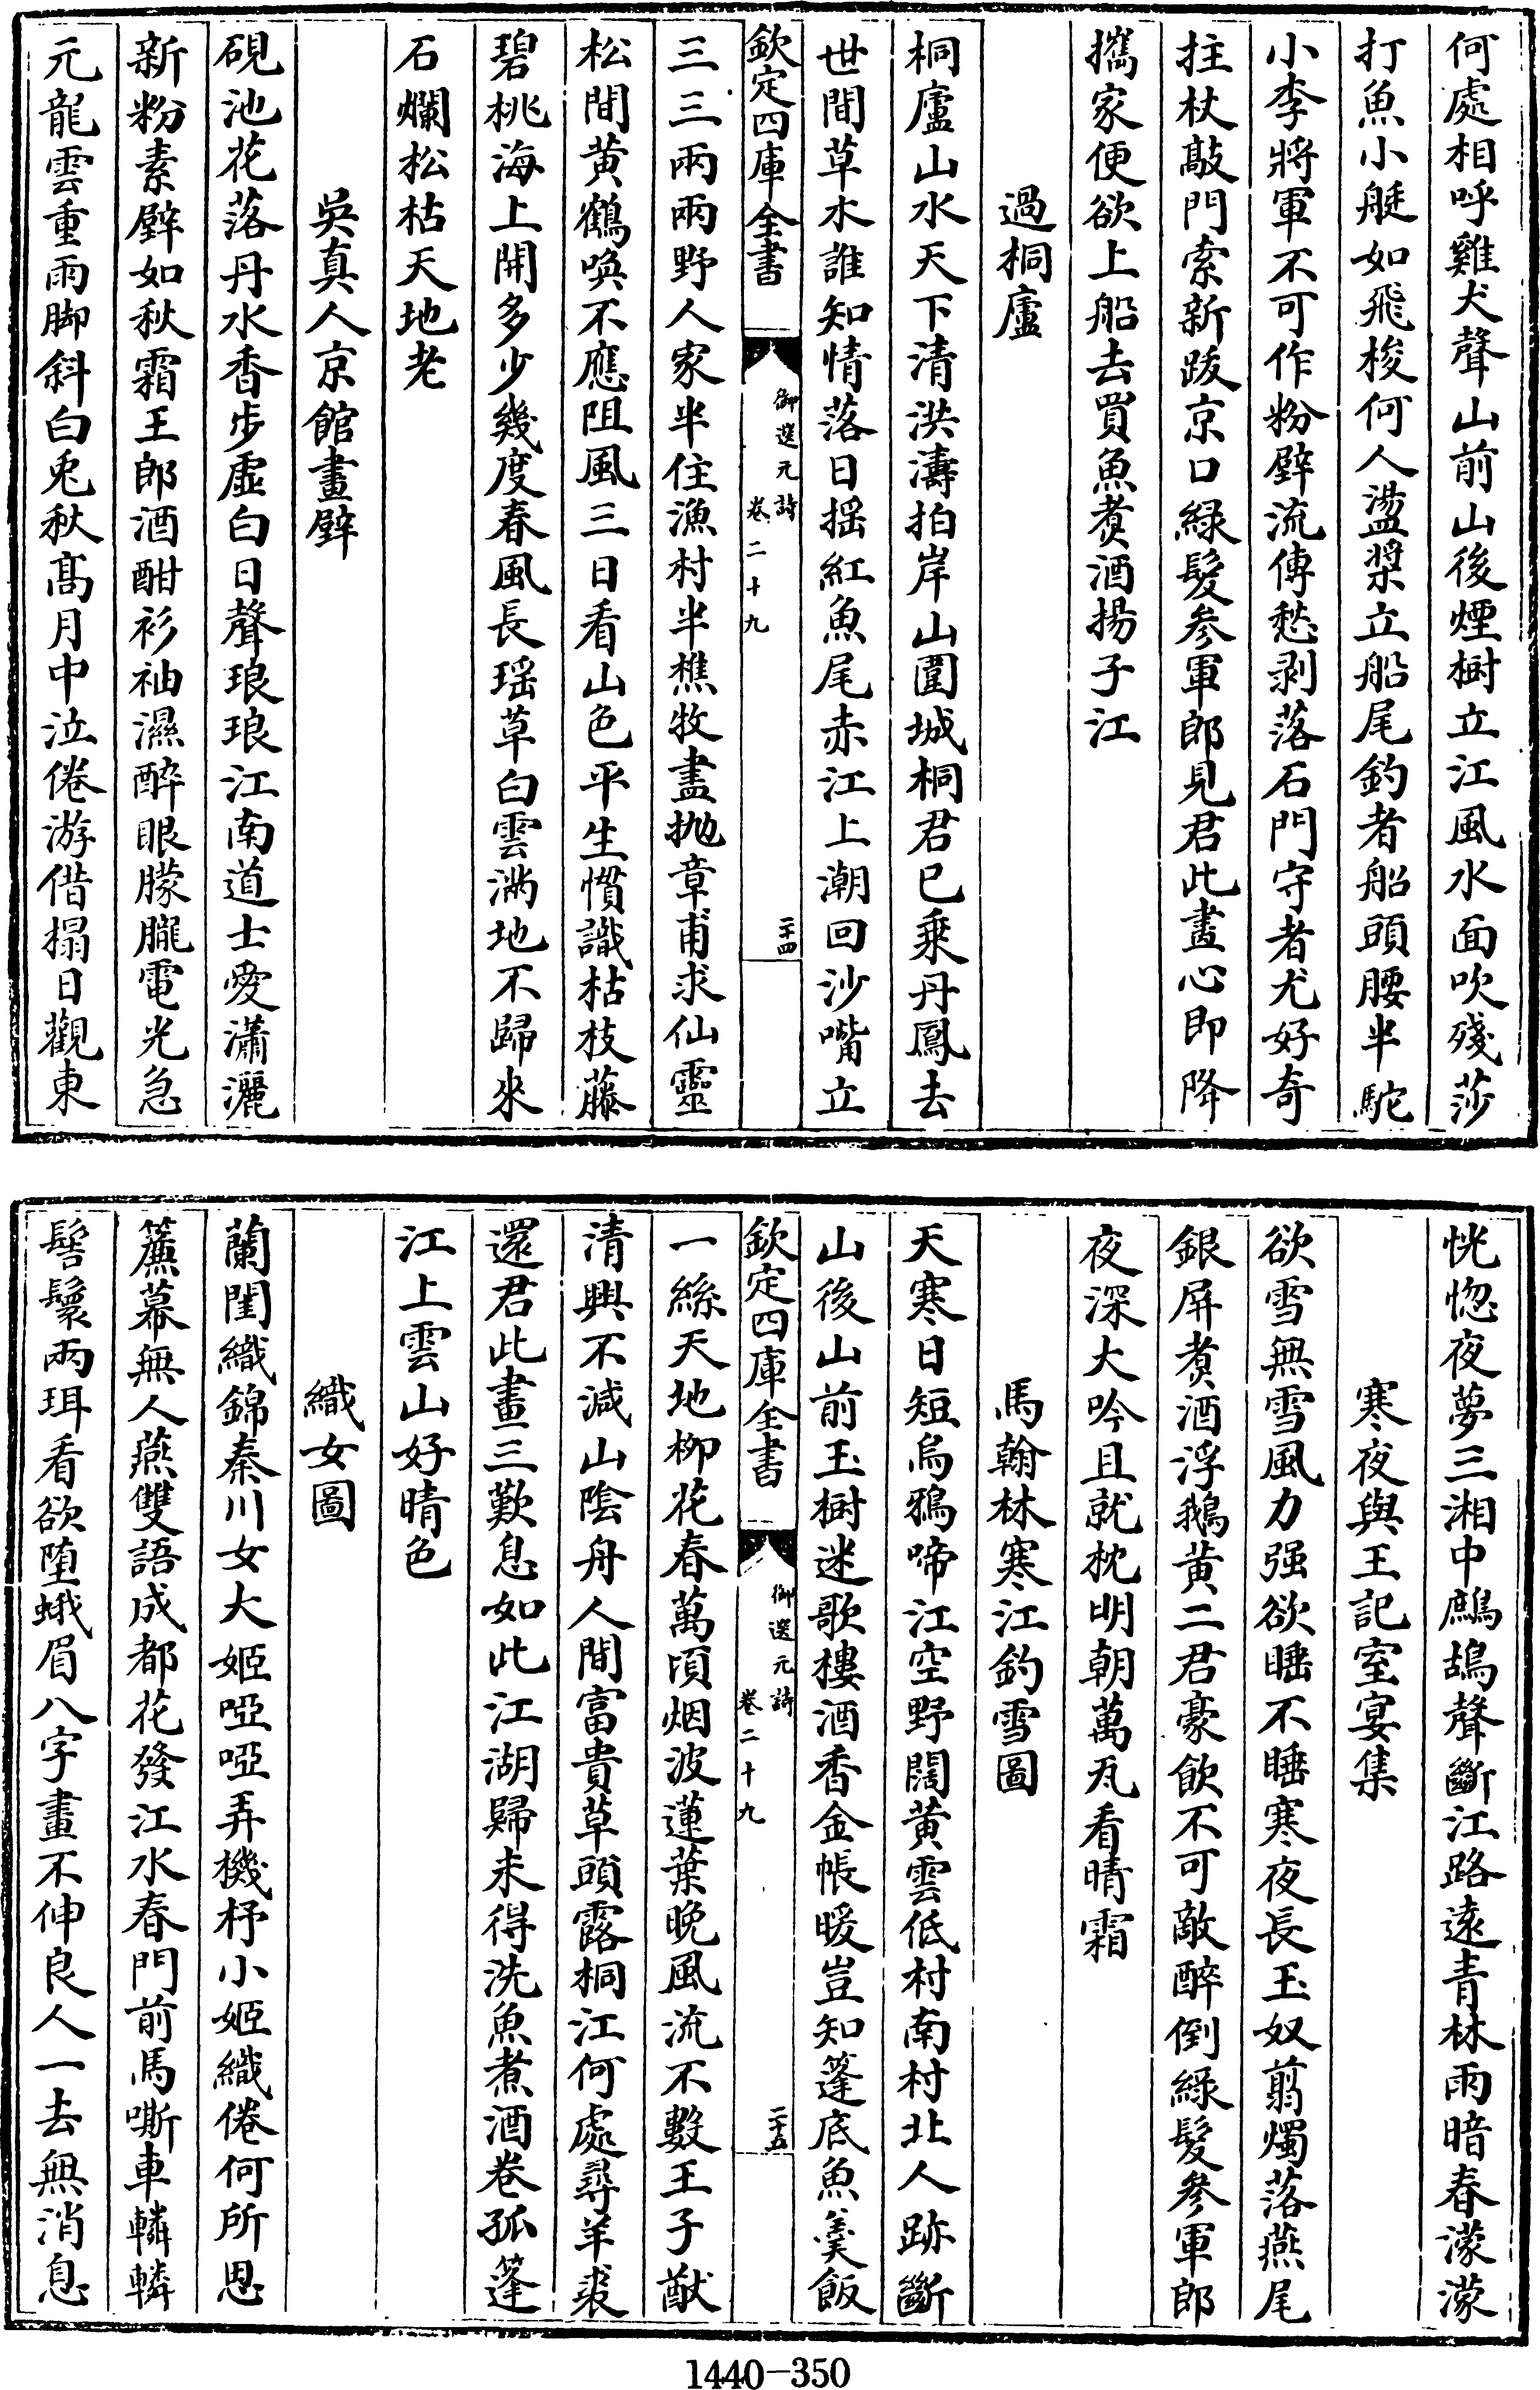 何處相呼雞犬聲山前山後煙樹立江風水面吹殘莎
打魚小艇如飛梭何人盪槳立船尾釣者船頭腰半駝
小李將軍不可作粉壁流傳愁剥落石門守者尤好奇
拄杖敲門索新跋京口緑髮參軍郎見君此畫心即降
攜家便欲上船去買魚煑酒揚子江
過桐廬
桐廬山水天下清洪濤拍岸山圍城桐君已乘丹鳳去
世間草木誰知情落日揺紅魚尾赤江上潮回沙嘴立
欽定四庫全書
御選元詩
卷二十九
二十四
三三兩兩野人家半住漁村半樵牧盡抛章甫求仙靈
松間黄鶴喚不應阻風三日看山色平生慣識枯枝藤
碧桃海上開多少幾度春風長瑶草白雲滿地不歸來
石爛松枯天地老
吳真人京館畫壁
硯池花落丹水香步虛白日聲琅琅江南道士愛瀟灑
新粉素壁如秋霜王郎酒酣衫袖濕醉眼朦朧電光急
元龍雲重雨脚斜白兎秋髙月中泣倦游借榻日觀東
恍惚夜夢三湘中鷓鴣聲斷江路遠青林雨暗春濛濛
寒夜與王記室宴集
欲雪無雪風力强欲睡不睡寒夜長玉奴翦燭落燕尾
銀屏煑酒浮鵝黄二君豪飲不可敵醉倒緑髮參軍郎
夜深大吟且就枕明朝萬瓦看晴霜
馬翰林寒江釣雪圖
天寒日短烏鴉啼江空野闊黄雲低村南村北人跡斷
山後山前玉樹迷歌樓酒香金帳暖豈知篷底魚羹飯
欽定四庫全書
御選元詩
卷二十九
二十五
一絲天地柳花春萬頃烟波蓮葉晚風流不數王子猷
清興不減山陰舟人間富貴草頭露桐江何處尋羊裘
還君此畫三歎息如此江湖歸未得洗魚煮酒卷孤篷
江上雲山好晴色
織女圖
蘭閨織錦秦川女大姬啞啞弄機杼小姬織倦何所思
簾幕無人燕雙語成都花發江水春門前馬嘶車轔轔
髻鬟兩珥看欲墮蛾眉八字畫不伸良人一去無消息
1440-350